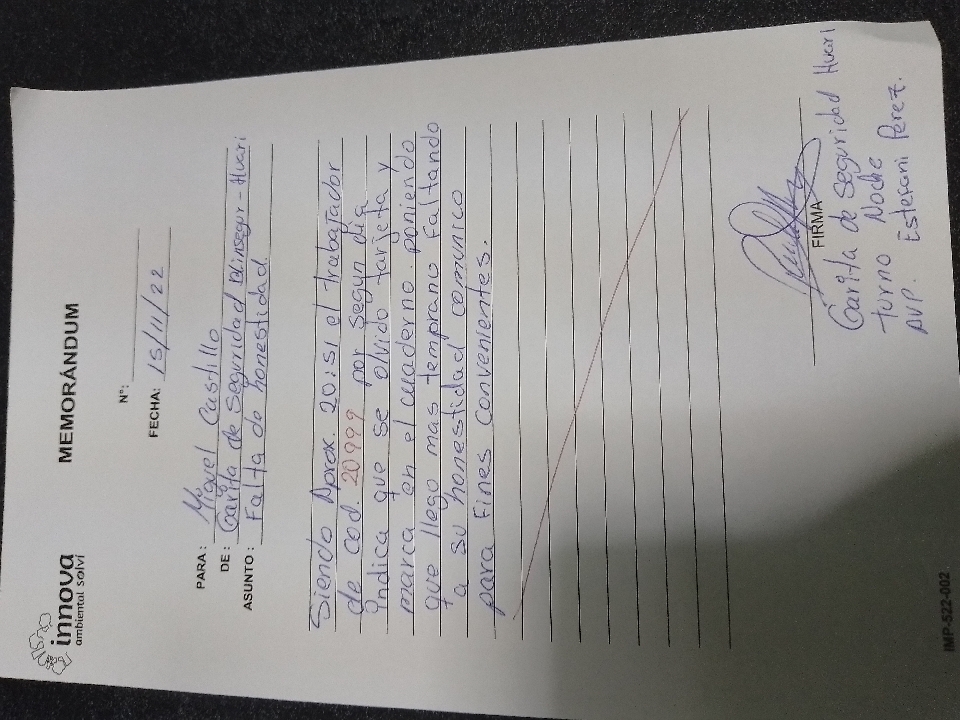 innova
ambiental solví
MEMORÁNDUM
N°:
FECHA: 15/11/22
PARA: Miguel Castillo
DE: Garita de Seguridad Huari
ASUNTO: Falta de honestidad.
Siendo Aprox. 20:51 el trabajador
de cod. 20999 por según día
indica que se olvido tarjeta y
marca en el cuaderno. poniendo
que llego mas temprano Faltando
a su honestidad comunico
para Fines convenientes.
FIRMA
Garita de Seguridad Huari
turno Noche
AVP. Estefani Perez.
IMP-522-002